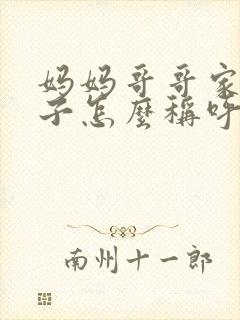 妈妈哥哥家
子怎麼稱呼
南州十一郎